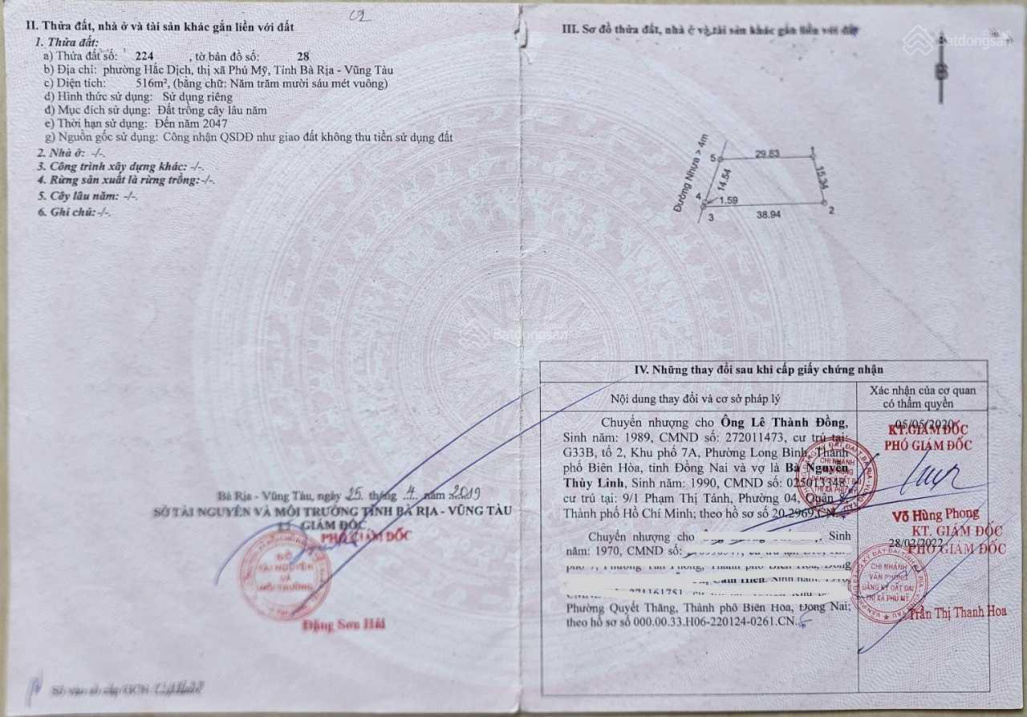 II. Thửa đất, nhà ở và tài sản khác gắn liền với đất
1. Thửa đất:
a) Thửa đất số: 224 , tờ bản đồ số: 28
b) Địa chỉ: phường Hắc Dịch, thị xã Phú Mỹ, Tỉnh Bà Rịa - Vũng Tàu
c) Diện tích: 516m², (bằng chữ: Năm trăm mười sáu mét vuông)
d) Hình thức sử dụng: Sử dụng riêng
đ) Mục đích sử dụng: Đất trồng cây lâu năm
e) Thời hạn sử dụng: Đến năm 2047
g) Nguồn gốc sử dụng: Công nhận QSDĐ như giao đất không thu tiền sử dụng đất
2. Nhà ở: -/-.
3. Công trình xây dựng khác: -/-.
4. Rừng sản xuất là rừng trồng: -/-.
5. Cây lâu năm: -/-.
6. Ghi chú: -/-.
Bà Rịa - Vũng Tàu, ngày 25 tháng 4 năm 2019
SỞ TÀI NGUYÊN VÀ MÔI TRƯỜNG TỈNH BÀ RỊA - VŨNG TÀU
GIÁM ĐỐC
PHÓ GIÁM ĐỐC
SỞ
TÀI NGUYÊN
VÀ
MÔI TRƯỜNG
Đặng Sơn Hải
Số vào sổ cấp GCN:
III. Sơ đồ thửa đất, nhà ở và tài sản khác gắn liền với đất
Batdongsan
B
Đường Nhựa > 4m
5
29.83
1
14.54
15.34
4
1.59
3
38.94
2
Batdongsan
IV. Những thay đổi sau khi cấp giấy chứng nhận
Nội dung thay đổi và cơ sở pháp lý
Xác nhận của cơ quan
có thẩm quyền
Chuyển nhượng cho Ông Lê Thành Đồng,
Sinh năm: 1989, CMND số: 272011473, cư trú tại:
G33B, tổ 2, Khu phố 7A, Phường Long Bình, Thành
phố Biên Hòa, tỉnh Đồng Nai và vợ là Bà Nguyễn
Thùy Linh, Sinh năm: 1990, CMND số: 025013348,
cư trú tại: 9/1 Phạm Thị Tánh, Phường 04, Quận 8,
Thành phố Hồ Chí Minh; theo hồ sơ số 20.2969.CN.
05/05/2020
KT.GIÁM ĐỐC
PHÓ GIÁM ĐỐC
Võ Hùng Phong
Chuyển nhượng cho , Sinh
năm: 1970, CMND số:
Phường Quyết Thắng, Thành phố Biên Hòa, Đồng Nai;
theo hồ sơ số 000.00.33.H06-220124-0261.CN.
KT. GIÁM ĐỐC
28/02/2022
PHÓ GIÁM ĐỐC
CHI NHÁNH
VĂN PHÒNG
ĐĂNG KÝ ĐẤT ĐAI
THỊ XÃ PHÚ MỸ
Trần Thị Thanh Hoa